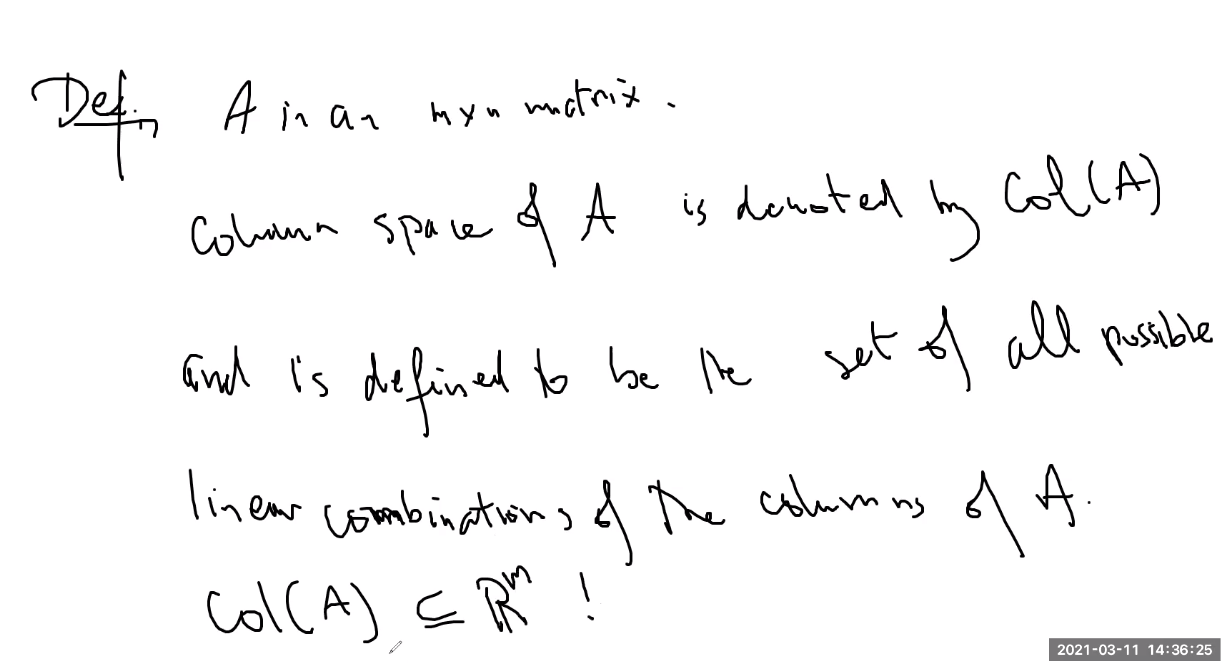 Def. A is an m x n matrix.
Column space of A is denoted by Col(A)
and is defined to be the set of all possible
linear combinations of the columns of A.
Col(A) ⊆ ℝᵐ !
2021-03-11 14:36:25